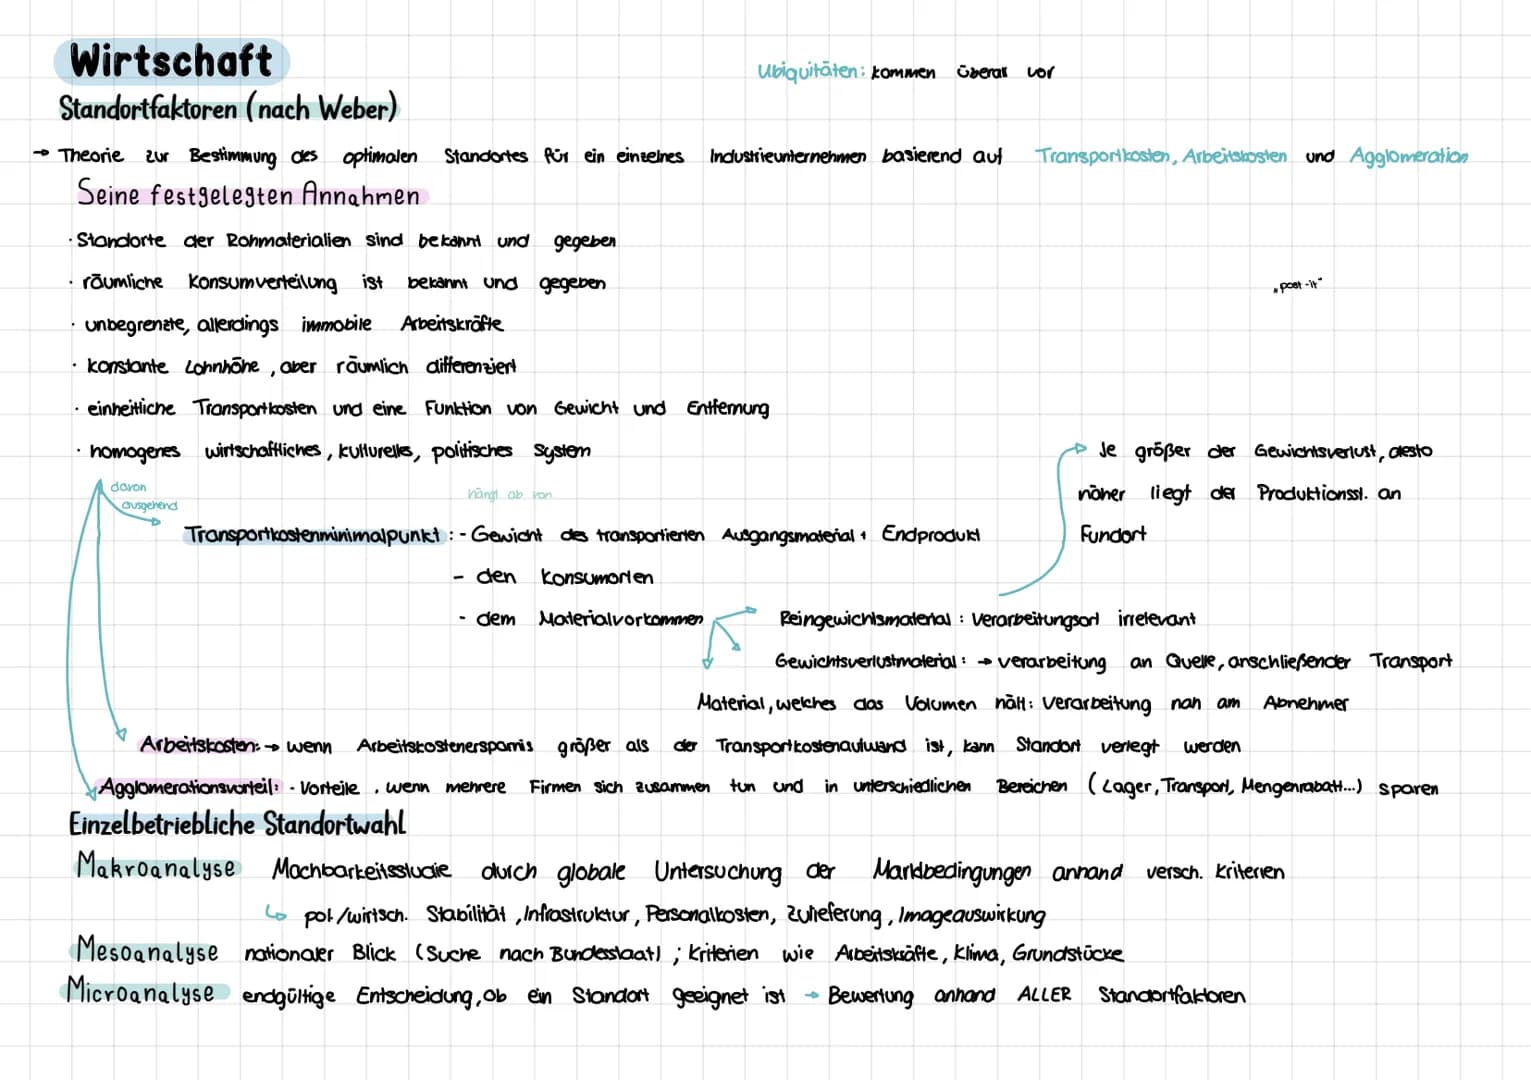 Wirtschaft
Ubiquitäten: kommen überall vor
Standortfaktoren (nach Weber)
→ Theorie zur Bestimmung des optimalen Standortes für ein einzelnes Industrieunternehmen basierend auf Transportkosten, Arbeitskosten und Agglomeration
Seine festgelegten Annahmen
· Standorte der Rohmaterialien sind bekannt und gegeben
· räumliche Konsumverteilung ist bekannt und gegeben
„post-it"
· unbegrenzte, allerdings immobile Arbeitskräfte
· konstante Lohnhöhe, aber räumlich differenziert
· einheitliche Transportkosten und eine Funktion von Gewicht und Entfernung
· homogenes wirtschaftliches, kulturelles, politisches System
Je größer der Gewichtsverlust, desto
näher liegt der Produktionsst. an
Fundort
davon
ausgehend
hängt ab von
Transportkostenminimalpunkt: - Gewicht des transportierten Ausgangsmaterial + Endprodukt
- den Konsumorten
- dem Materialvorkommen
Reingewichtsmaterial: Verarbeitungsort irrelevant
Gewichtsverlustmaterial: → verarbeitung an Quelle, anschließender Transport
Material, welches das Volumen hält: Verarbeitung nah am Abnehmer
Arbeitskosten: → wenn Arbeitskostenersparnis größer als der Transportkostenaufwand ist, kann Standort verlegt werden
Agglomerationsvorteil: - Vorteile, wenn mehrere Firmen sich zusammen tun und in unterschiedlichen Bereichen (Lager, Transport, Mengenrabatt...) sparen
Einzelbetriebliche Standortwahl
Makroanalyse Machbarkeitsstudie durch globale Untersuchung der Marktbedingungen anhand versch. Kriterien
↳ pol./wirtsch. Stabilität, Infrastruktur, Personalkosten, Zulieferung, Imageauswirkung
Mesoanalyse nationaler Blick (Suche nach Bundesstaat); Kriterien wie Arbeitskräfte, Klima, Grundstücke
Microanalyse endgültige Entscheidung, ob ein Standort geeignet ist → Bewertung anhand ALLER Standortfaktoren